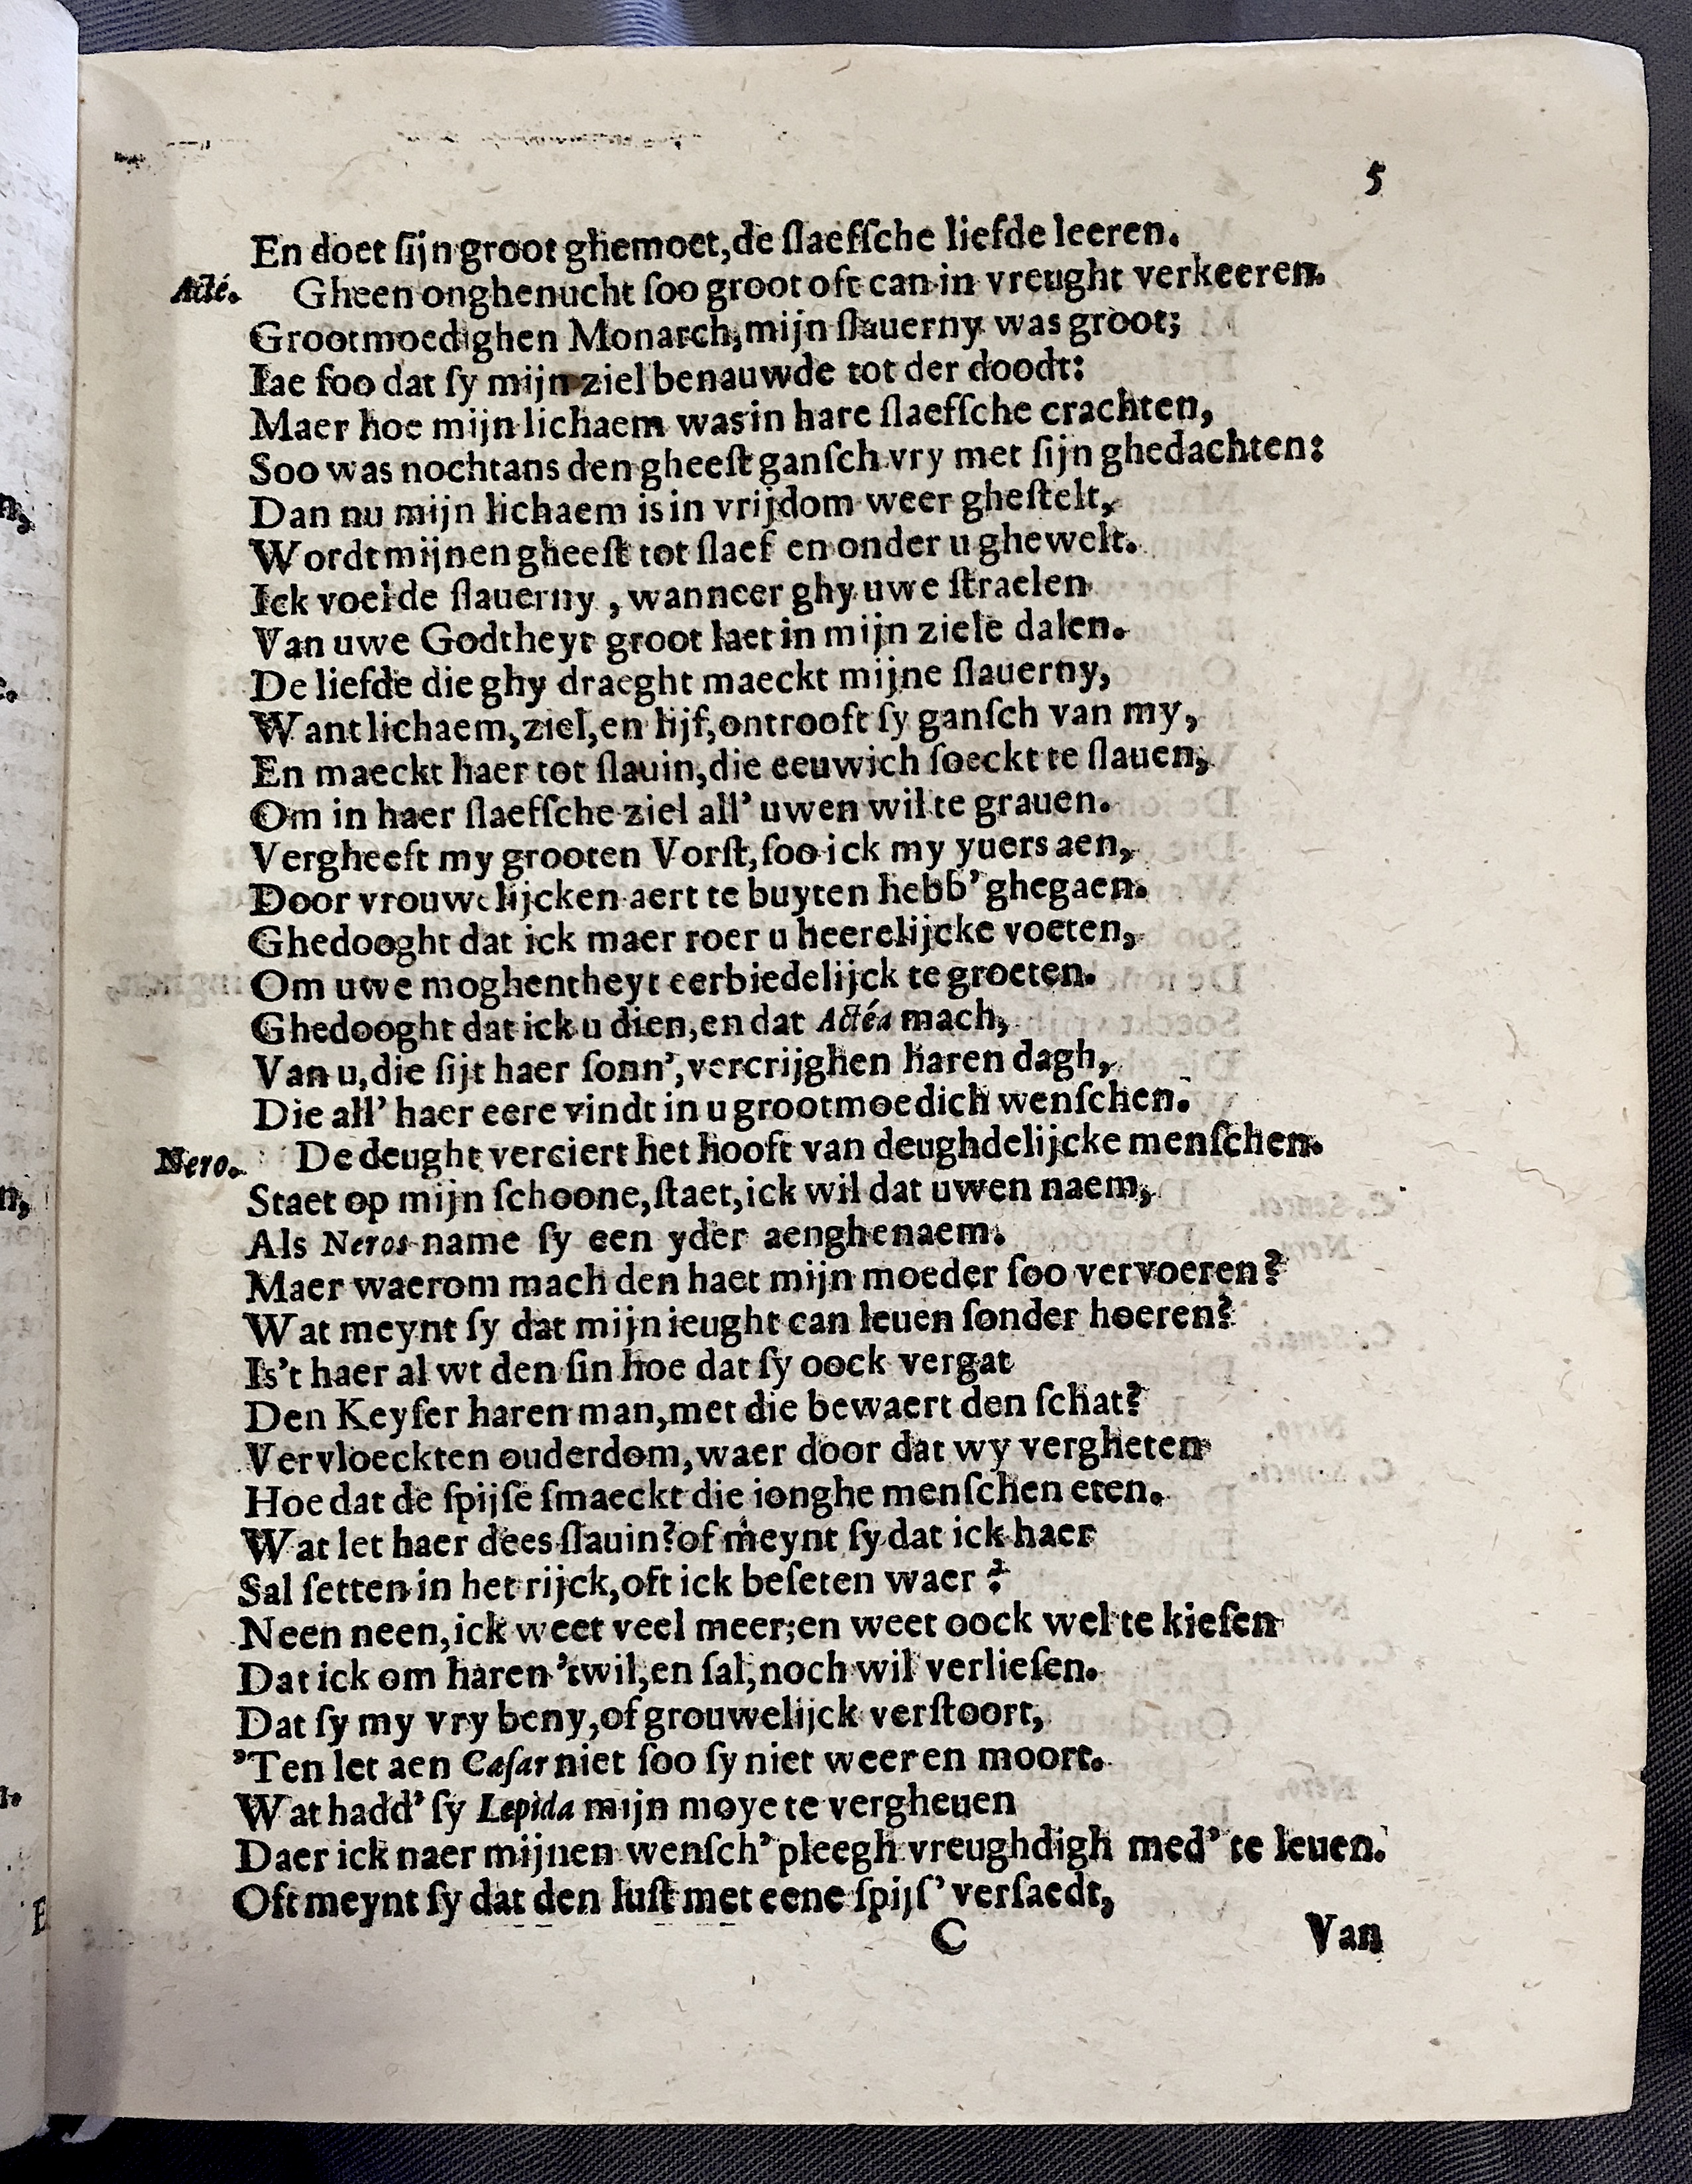 5
En doet ſijn groot ghemoet, de ſlaefſche liefde leeren.
Acté. Gheen onghenucht ſoo groot oft can in vreught verkeeren.
Grootmoedighen Monarch, mijn ſlauerny was groot;
Iae ſoo dat ſy mijn ziel benauwde tot der doodt:
Maer hoe mijn lichaem was in hare ſlaefſche crachten,
Soo was nochtans den gheeſt ganſch vry met ſijn ghedachten:
Dan nu mijn lichaem is in vrijdom weer gheſtelt,
Wordt mijnen gheeſt tot ſlaef en onder u ghewelt.
Ick voelde ſlauerny, wanneer ghy uwe ſtraelen
Van uwe Godtheyt groot laet in mijn ziele dalen.
De liefde die ghy draeght maeckt mijne ſlauerny,
Want lichaem, ziel, en lijf, ontrooft ſy ganſch van my,
En maeckt haer tot ſlauin, die eeuwich ſoeckt te ſlauen,
Om in haer ſlaefſche ziel all' uwen wil te grauen.
Vergheeft my grooten Vorſt, ſoo ick my yuers aen,
Door vrouwelijcken aert te buyten hebb' ghegaen.
Ghedooght dat ick maer roer u heerelijcke voeten,
Om uwe moghentheyt eerbiedelijck te groeten.
Ghedooght dat ick u dien, en dat Actéa mach,
Van u, die ſijt haer ſonn', vercrijghen haren dagh,
Die all' haer eere vindt in u grootmoedich wenſchen.
Nero. De deught verciert het hooft van deughdelijcke menſchen.
Staet op mijn ſchoone, ſtaet, ick wil dat uwen naem,
Als Neros name ſy een yder aenghenaem.
Maer waerom mach den haet mijn moeder ſoo vervoeren?
Wat meynt ſy dat mijn ieught can leuen ſonder hoeren?
Is't haer al wt den ſin hoe dat ſy oock vergat
Den Keyſer haren man, met die bewaert den ſchat?
Vervloeckten ouderdom, waer door dat wy vergheten
Hoe dat de ſpijſe ſmaeckt die ionghe menſchen eten.
Wat let haer dees ſlauin? of meynt ſy dat ick haer
Sal ſetten in het rijck, oft ick beſeten waer?
Neen neen, ick weet veel meer; en weet oock wel te kieſen
Dat ick om haren 'twil, en ſal, noch wil verlieſen.
Dat ſy my vry beny, of grouwelijck verſtoort,
'Ten let aen Cæſar niet ſoo ſy niet weer en moort.
Wat hadd' ſy Lepida mijn moye te vergheuen
Daer ick naer mijnen wenſch' pleegh vreughdigh med' te leuen.
Oft meynt ſy dat den luſt met eene ſpijſ' verſaedt,
C Van